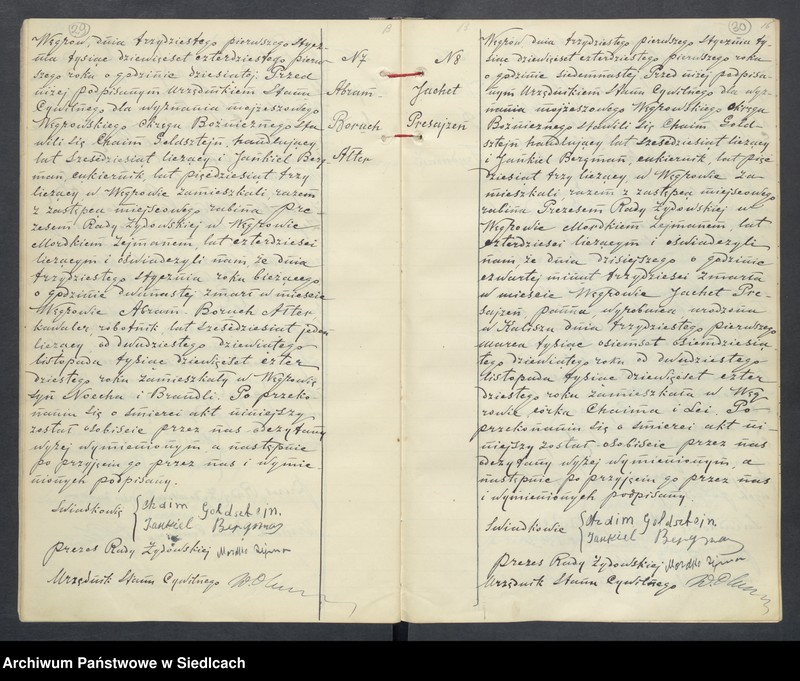 29
Węgrów, dnia trzydziestego pierwszego stycz-
nia tysiąc dziewięćset czterdziestego pierw-
szego roku o godzinie dziesiątej. Przed
niżej podpisanym Urzędnikiem Stanu
Cywilnego dla wyznania mojżeszowego
Węgrowskiego Okręgu Bożniczego sta-
wili się Chaim Goldsztejn, handlujący
lat sześćdziesiąt liczący i Jankiel Berg-
man, cukiernik, lat pięćdziesiąt trzy
liczący w Węgrowie zamieszkali, razem
z zastępcą miejscowego rabina Pre-
zesem Rady Żydowskiej w Węgrowie
Mordkiem Zejmanem, lat czterdzieści
liczącym i oświadczyli nam, że dnia
trzydziestego stycznia roku bieżącego
o godzinie dwunastej zmarł w mieście
Węgrowie Abram-Boruch Alter
kawaler, robotnik, lat sześćdziesiąt jeden
liczący, od dwudziestego dziewiątego
listopada tysiąc dziewięćset czter-
dziestego roku zamieszkały w Węgrowie
syn Noecha i Brandli. Po przeko-
naniu się o śmierci akt niniejszy
został osobiście przez nas odczytany
wyżej wymienionym, a następnie
po przyjęciu go przez nas i wymie-
nionych podpisany.
Świadkowie
Chaim Goldsztejn.
Jankiel Bergman
Prezes Rady Żydowskiej
Urzędnik Stanu Cywilnego
N7
Abram-
Boruch
Alter
13
N8
Jachet
Presajzen
30
Węgrów, dnia trzydziestego pierwszego stycznia ty-
siąc dziewięćset czterdziestego pierwszego roku
o godzinie siedemnastej. Przed niżej podpisa-
nym Urzędnikiem Stanu Cywilnego dla wyz-
nania mojżeszowego Węgrowskiego Okręgu
Bożniczego stawili się Chaim Gold-
sztejn handlujący lat sześćdziesiąt liczący
i Jankiel Bergman, cukiernik, lat pięć-
dziesiąt trzy liczący w Węgrowie za-
mieszkali, razem z zastępcą miejscowego
rabina Prezesem Rady Żydowskiej w
Węgrowie Mordkiem Zejmanem, lat
czterdzieści liczącym i oświadczyli
nam, że dnia dzisiejszego o godzinie
czwartej minut trzydzieści zmarła
w mieście Węgrowie Jachet Pre-
sajzen, panna, wyrobnica urodzona
w Kaliszu dnia trzydziestego pierwszego
marca tysiąc osiemset osiemdziesią-
tego dziewiątego roku od dwudziestego
listopada tysiąc dziewięćset czter-
dziestego roku zamieszkała w Węg-
rowie, córka Chaima i Lei. Po
przekonaniu się o śmierci akt ni-
niejszy został osobiście przez nas
odczytany wyżej wymienionym, a
następnie po przyjęciu go przez nas
i wymienionych podpisany.
Świadkowie
Chaim Goldsztejn.
Jankiel Bergman
Prezes Rady Żydowskiej
Urzędnik Stanu Cywilnego
Archiwum Państwowe w Siedlcach